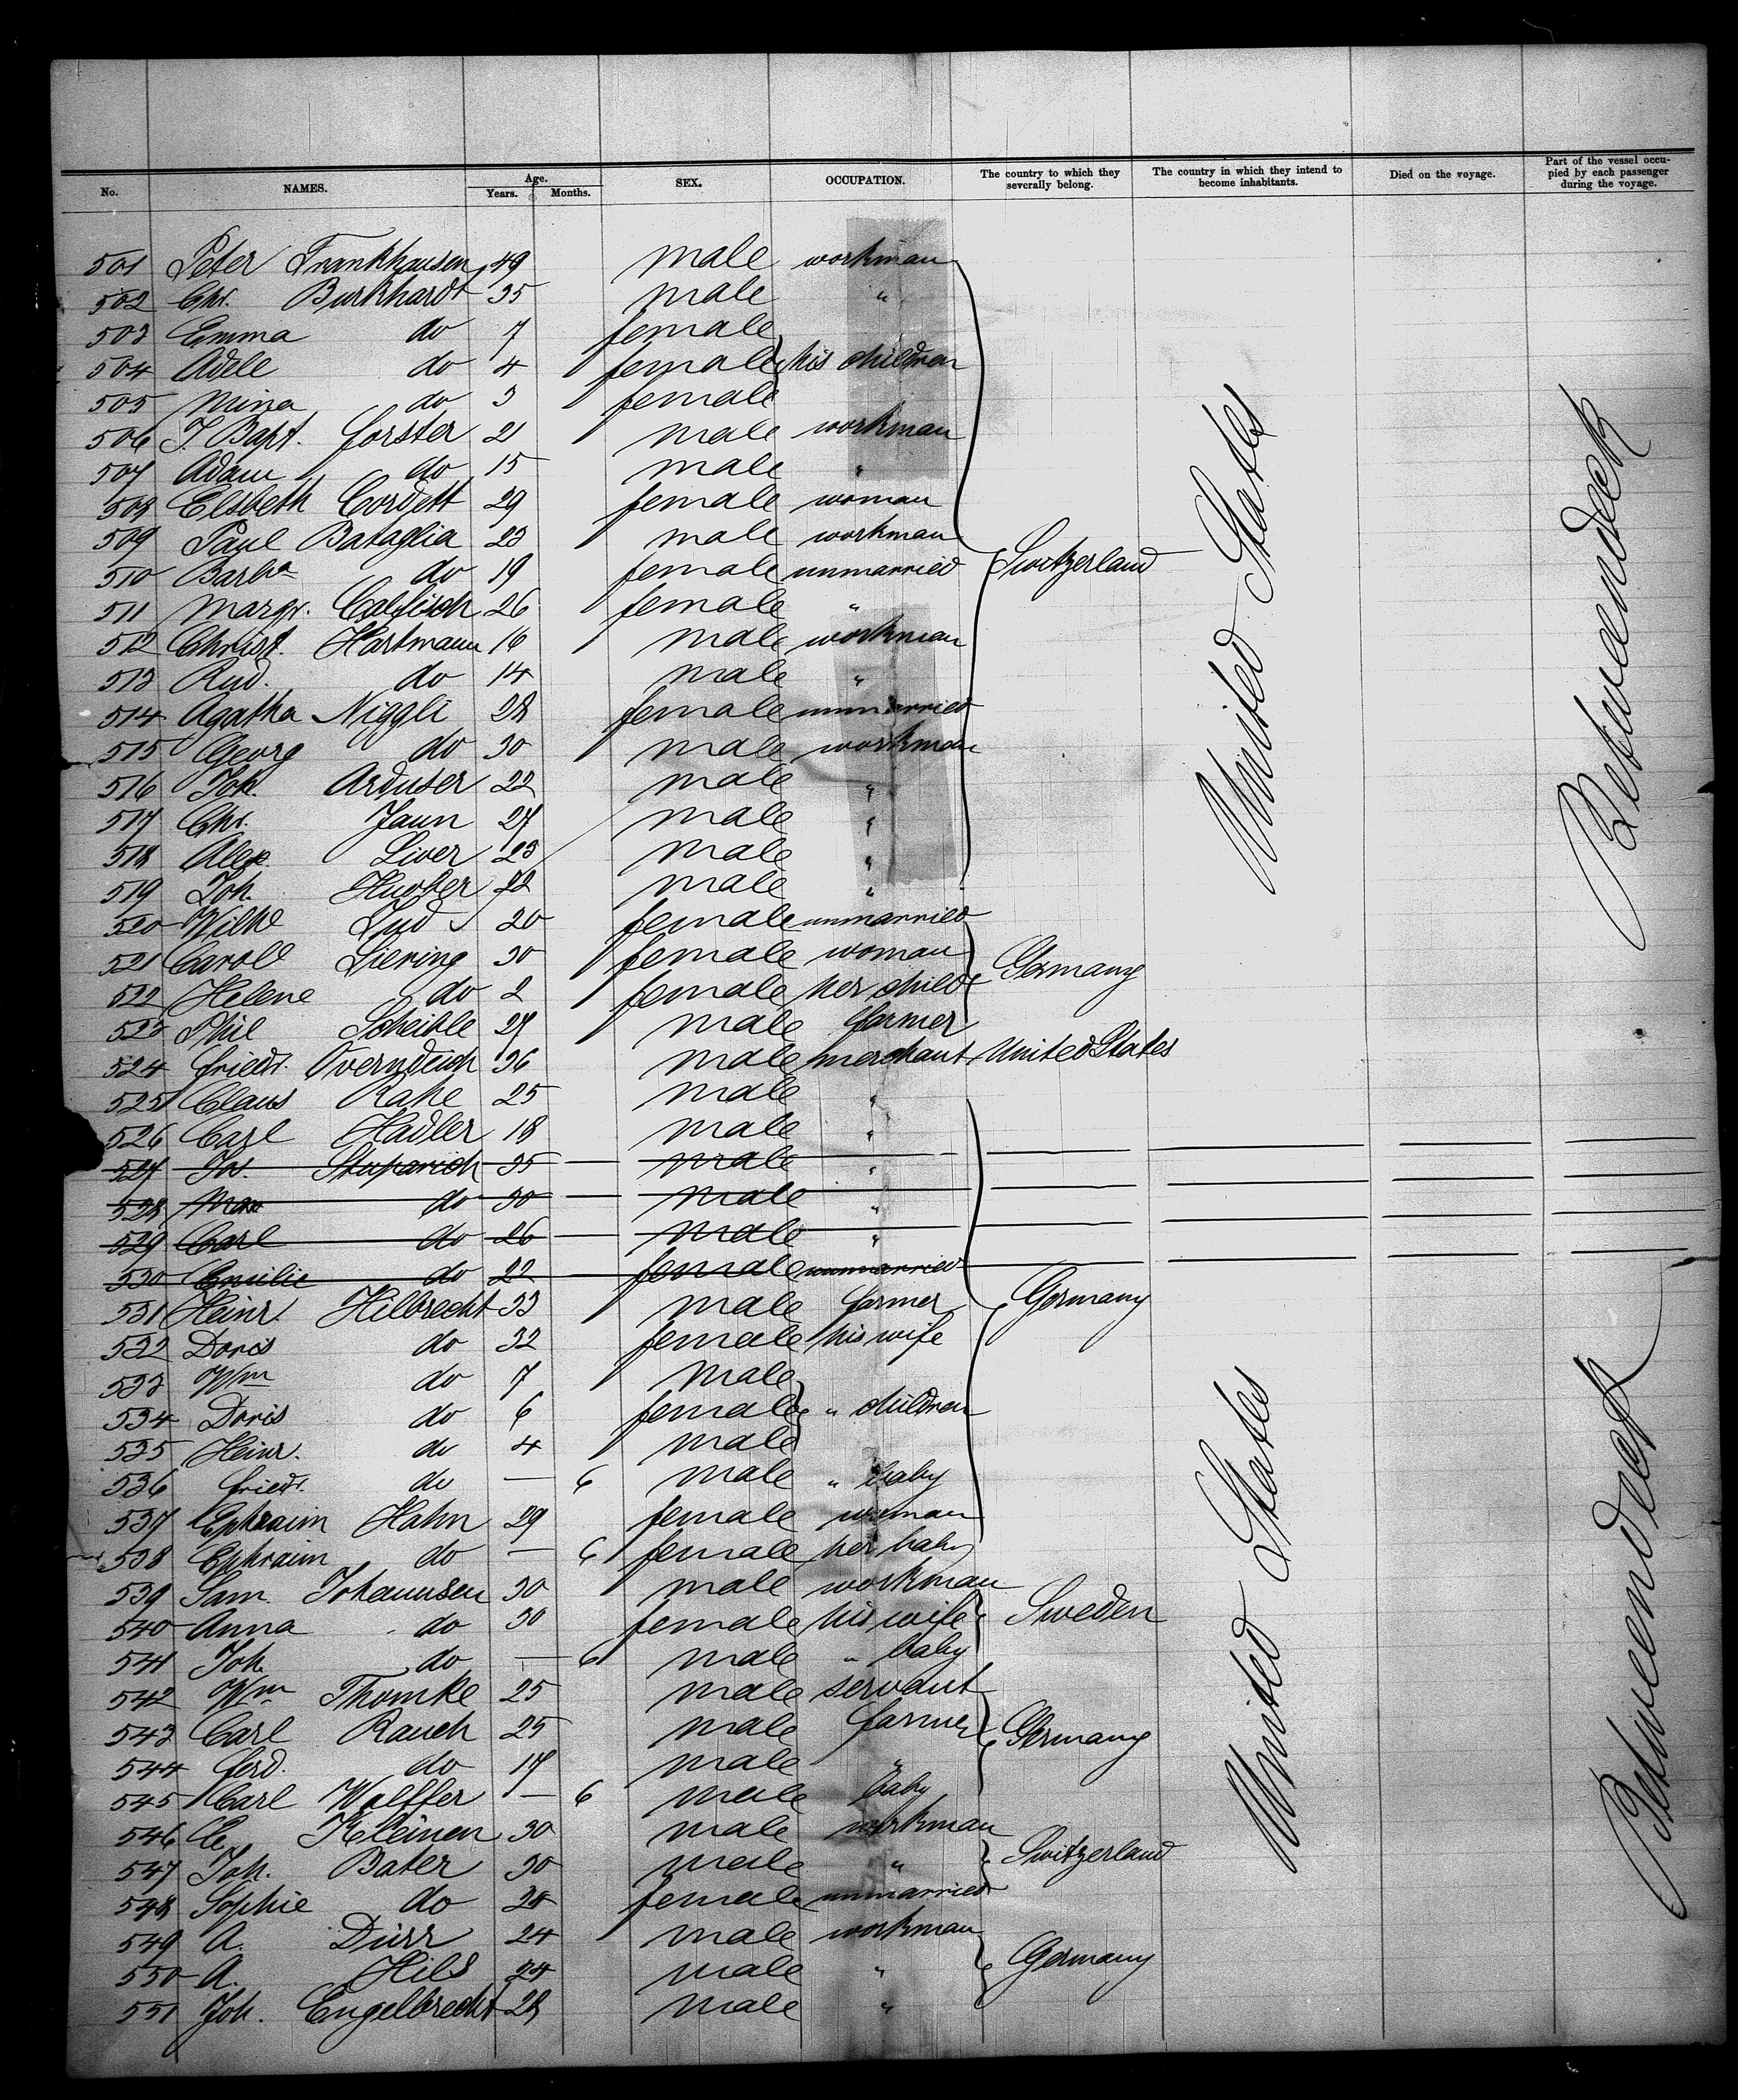 No. NAMES. Age. Years. Months. SEX. OCCUPATION. The country to which they severally belong. The country in which they intend to become inhabitants. Died on the voyage. Part of the vessel occupied by each passenger during the voyage.
501 Peter Frankhausen 49 male workman
502 Chr. Burkhardt 35 male "
503 Emma do 7 female
504 Adele do 4 female his children
505 Mina do 3 female
506 J. Bapt. Forster 21 male workman
507 Adam do 15 male "
508 Elsbeth Cordett 29 female woman
509 Paul Bataglia 23 male workman
510 Barba do 19 female unmarried Switzerland
511 Margr. Calfisch 26 female "
512 Christ. Hartmann 16 male workman
513 Rud. do 14 male "
514 Agatha Niggli 28 female unmarried
515 Georg do 30 male workman
516 Joh. Arduser 22 male "
517 Chr. Jaun 27 male "
518 Alex. Liver 23 male "
519 Joh. 22 male "
520 Wilhe Lud 20 female unmarried
521 Caroll Siering 30 female woman Germany
522 Helene do 2 female her child
523 Phil Scheible 27 male farmer
524 Friedr. Overndeich 36 male merchant United States
525 Claus Rahe 25 male "
526 Carl Hadler 18 male "
527 Jos. Stuparich 35 male "
528 Max do 30 male "
529 Carl do 26 male "
530 Emilie do 22 female unmarried
531 Heinr. Hilbrecht 33 male farmer Germany
532 Doris do 32 female his wife
533 Wm do 7 male
534 Doris do 6 female " children
535 Heinr. do 4 male
536 Friedr. do — 6 male " baby
537 Ephraim Hahn 29 female woman
538 Ephraim do — 6 female her baby
539 Sam. Johannsen 30 male workman
540 Anna do 30 female his wife Sweden
541 Joh. do — 6 male " baby
542 Wm Thomke 25 male servant
543 Carl Rauch 25 male farmer Germany
544 Ferd. do 17 male "
545 Carl Wolffer — 6 male baby
546 C. Kleinen 30 male workman
547 Joh. Bater 30 male " Switzerland
548 Sophie do female unmarried
549 A. Dürr 24 male workman
550 A. Hils 24 male " Germany
551 Joh. Engelbrecht 28 male "
United States
Betweendeck
United States
Betweendeck